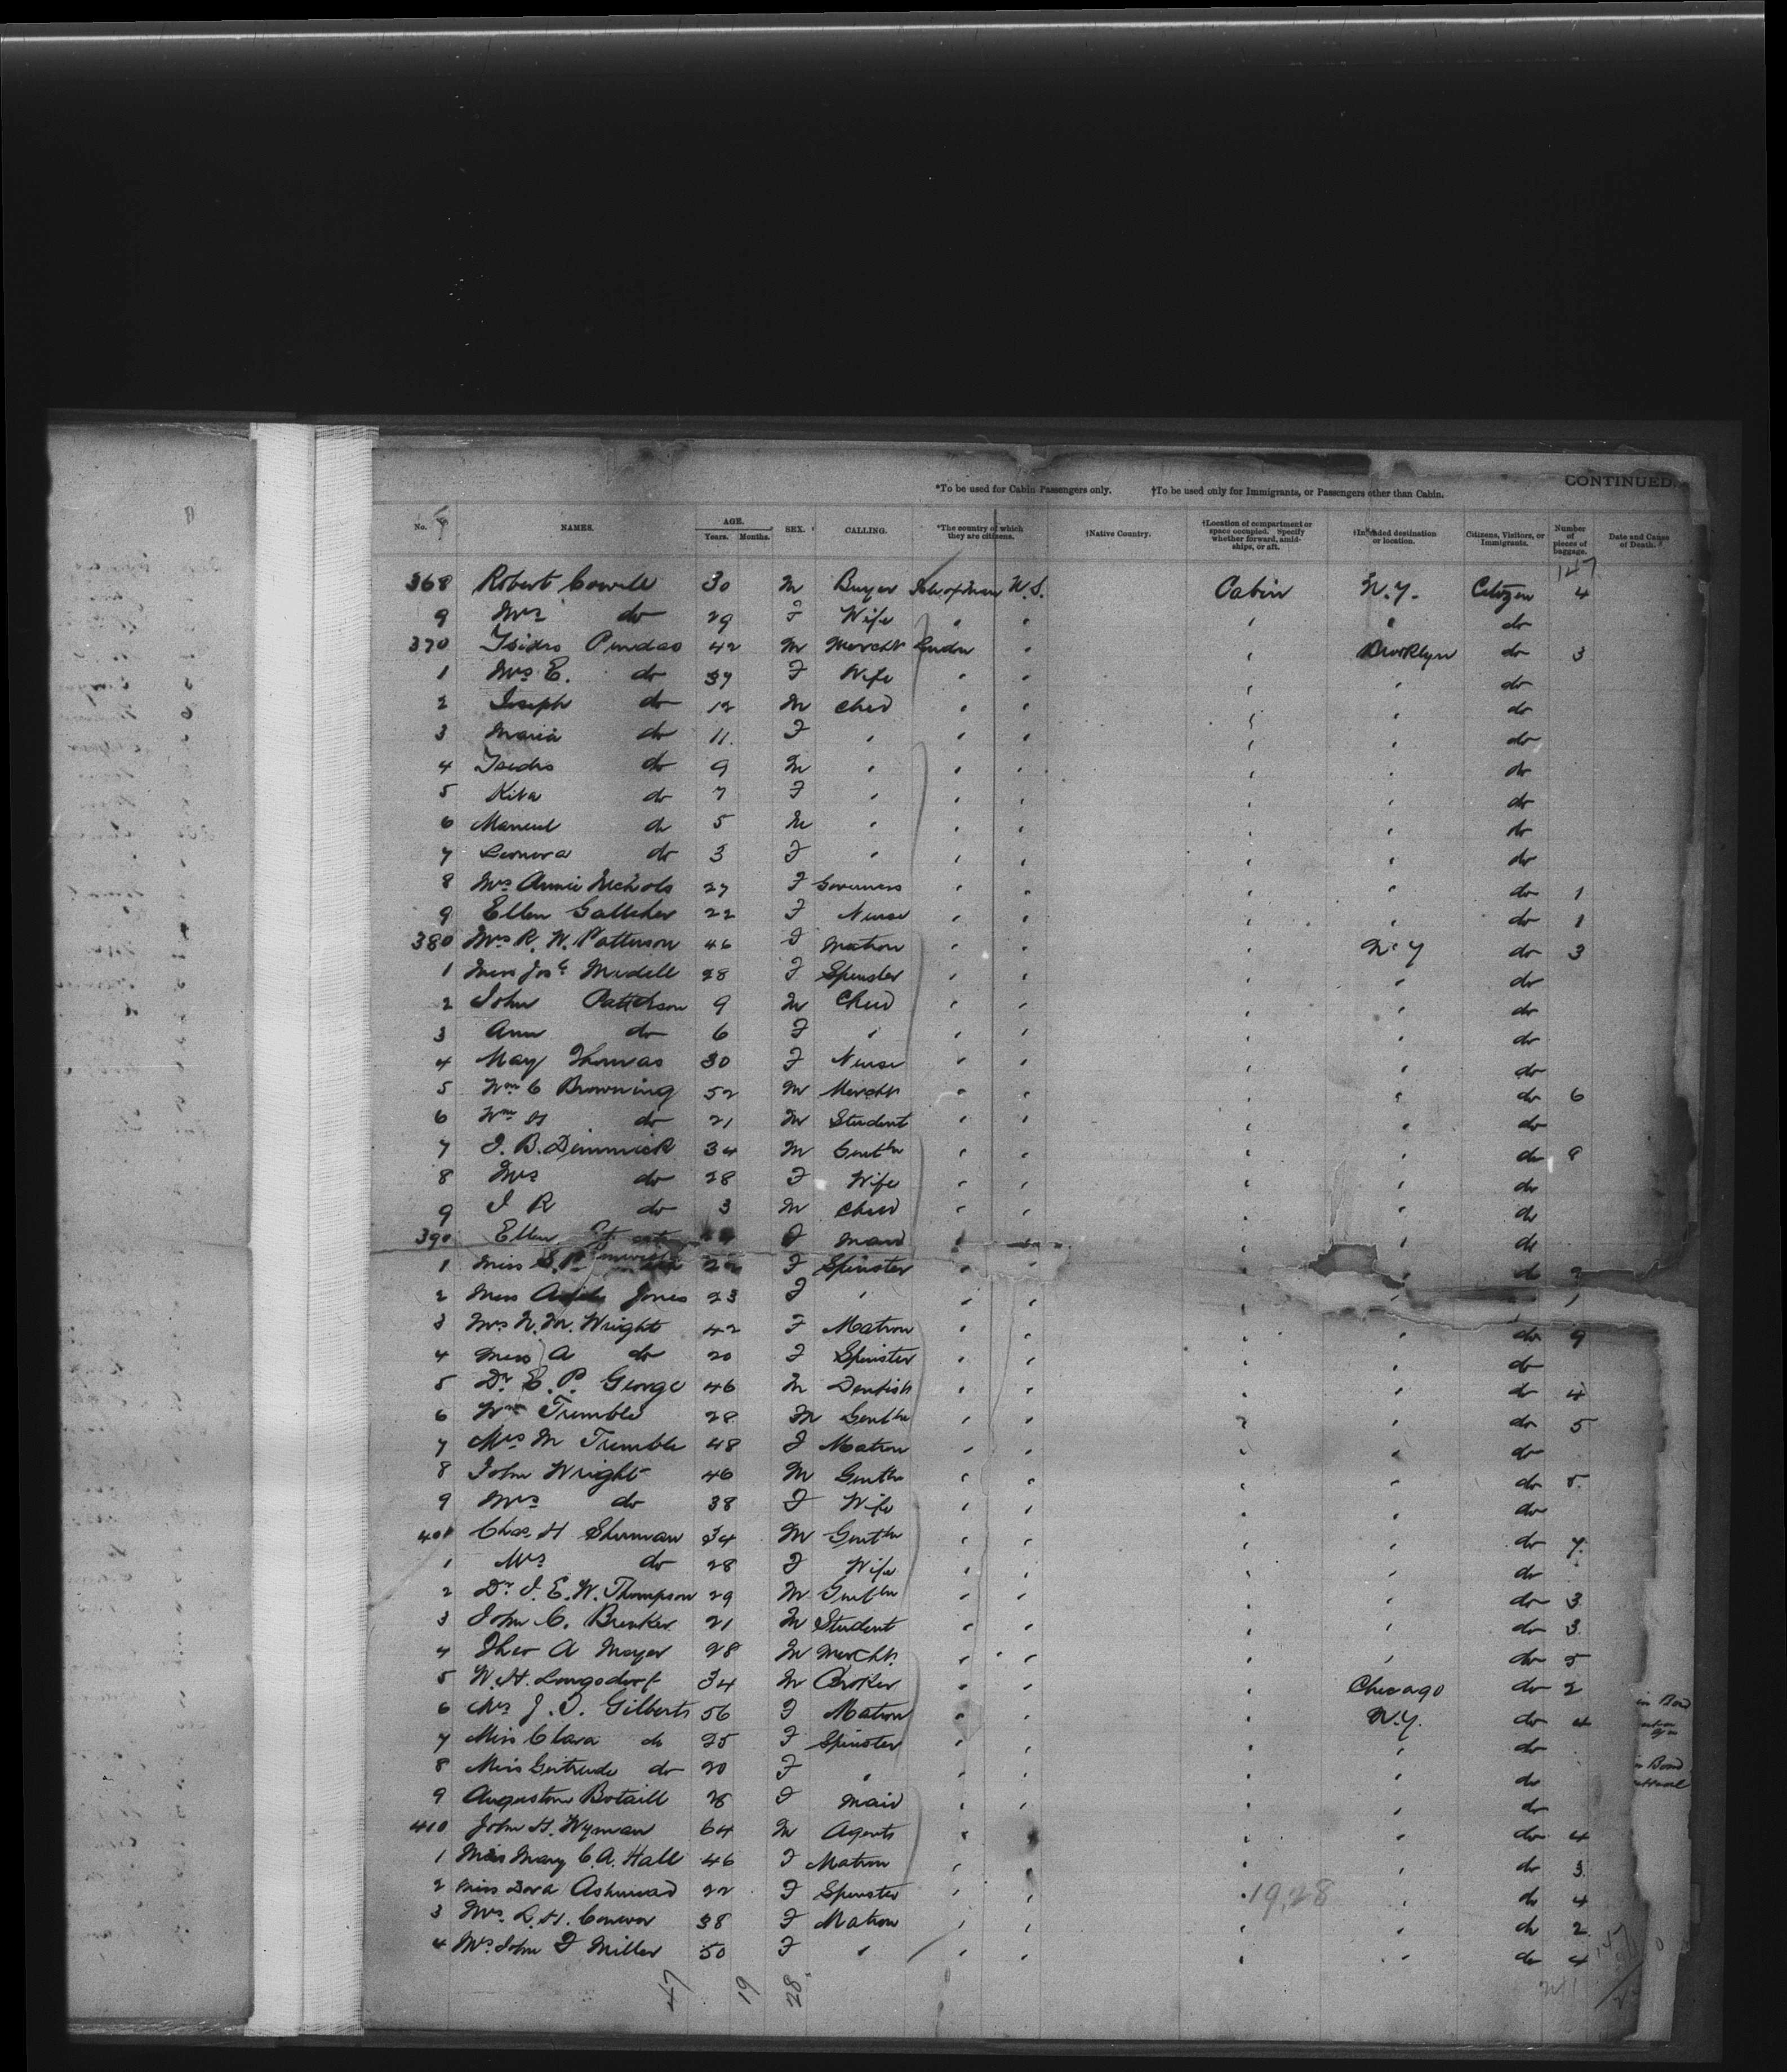 CONTINUED.
*To be used for Cabin Passengers only. †To be used only for Immigrants, or Passengers other than Cabin.
No. NAMES. AGE. Years. Months. SEX. CALLING. *The country of which they are citizens. †Native Country. †Location of compartment or space occupied. Specify whether forward, amidships, or aft. †Intended destination or location. Citizens, Visitors, or Immigrants. Number of pieces of baggage. Date and Cause of Death.
147
368 Robert Cowell 30 M Buyer Isle of Man U.S. Cabin N.Y. Citizen 4
9 Mrs do 29 F Wife " " " " do
370 Isidro 42 M Mercht " " Brooklyn do 3
1 Mrs E. do 37 F Wife " " " " do
2 Joseph do 12 M Child " " " " do
3 Maria do 11 F " " " " " do
4 Isidro do 9 M " " " " " do
5 Rita do 7 F " " " " " do
6 Manuel do 5 M " " " " " do
7 Leonora do 3 F " " " " " do
8 Mrs Annie Nichols 27 F Governess " " " " do 1
9 Ellen Gallisher 22 F Nurse " " " " do 1
380 Mrs R. W. Patterson 46 F Matron " " " N.Y do 3
1 Miss Jose Medill 28 F Spinster " " " " do
2 John Patterson 9 M Child " " " " do
3 Ann do 6 F " " " " " do
4 May Thomas 30 F Nurse " " " " do
5 Wm C Browning 52 M Mercht " " " " do 6
6 Wm H do 21 M Student " " " " do
7 J. B. Dimmick 34 M Gentln " " " " do 9
8 Mrs do 28 F Wife " " " " do
9 J R do 3 M Child " " " " do
390 Ellen F Maid " " " " do
1 Miss S. F Spinster " " " " do
2 Miss Jones 23 F " " " " " 1
3 Mrs N. M. Wright 42 F Matron " " " " do 9
4 Miss A do 20 F Spinster " " " " do
5 Dr E. P. George 46 M Dentist " " " " do 4
6 Wm Trimble 28 M Gentln " " " " do 5
7 Mrs M Trimble 48 F Matron " " " " do
8 John Wright 46 M Gentln " " " " do 5
9 Mrs do 38 F Wife " " " " do
400 Chas. H Sherman 34 M Gentln " " " " do 7
1 Mrs do 28 F Wife " " " " do
2 Dr J. E. W. Thompson 29 M Gentln " " " " do 3
3 John C. Brenker 21 M Student " " " " do 3
4 Theo A Mayer 28 M Mercht " " " " do 5
5 W. H. Longsdorf 34 M Broker " " " Chicago do 2
6 Mrs J. T. Gilberts 56 F Matron " " " N.Y. do 4
7 Miss Clara do 25 F Spinster " " " " do
8 Miss Gertrude do 20 F " " " " " do
9 Augustine Botaill 28 F Maid " " " " do
410 John H. Wyman 64 M Agent " " " " do 4
1 Miss Mary C. A. Hall 46 F Matron " " " " do 3
2 Miss Dora 22 F Spinster " " " " do 4
19,28
3 Mrs L. H. Connor 38 F Matron " " " " do 2
4 Mrs John F Miller 50 F " " " " " do 4
47 19 28